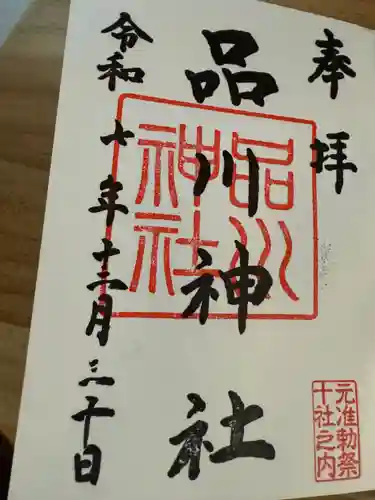 奉拝
品川神社
品川神社
元准勅祭
十社之内
令和七年十二月三十日